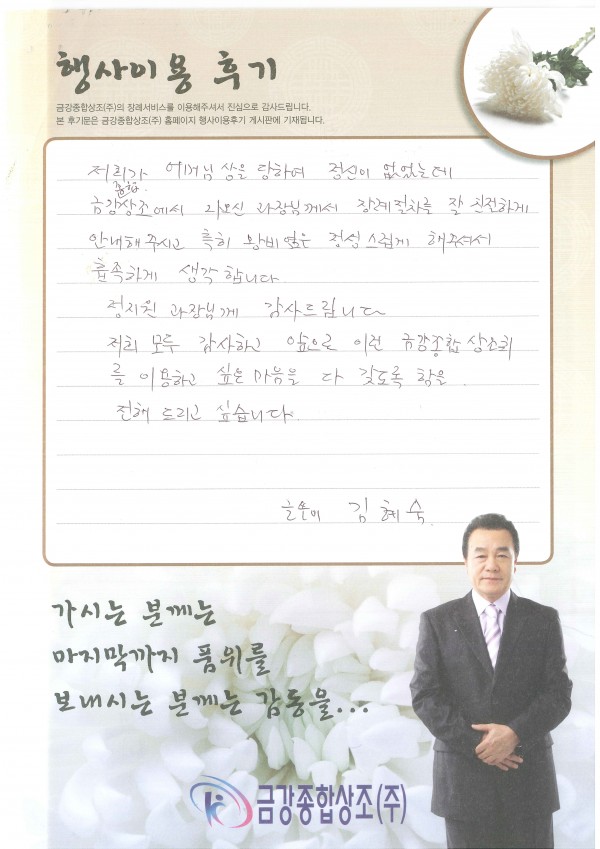 행사이용 후기
금강종합상조(주)의 장례서비스를 이용해주셔서 진심으로 감사드립니다.
본 후기문은 금강종합상조(주) 홈페이지 행사이용후기 게시판에 기재됩니다.
저희가 어머님 상을 당하여 정신이 없었는데
종합
금강상조에서 나오신 과장님께서 장례절차를 잘 친절하게
안내해 주시고 특히 정성스럽게 해주셔서
흡족하게 생각합니다
정지원 과장님께 감사드립니다
저희 모두 감사하고 앞으로 이런 금강종합상조회
를 이용하고 싶은 마음을 다 갖도록 함을
전해 드리고 싶습니다.
김혜숙
가시는 분께는
마지막까지 품위를
보내시는 분께는 감동을...
금강종합상조(주)